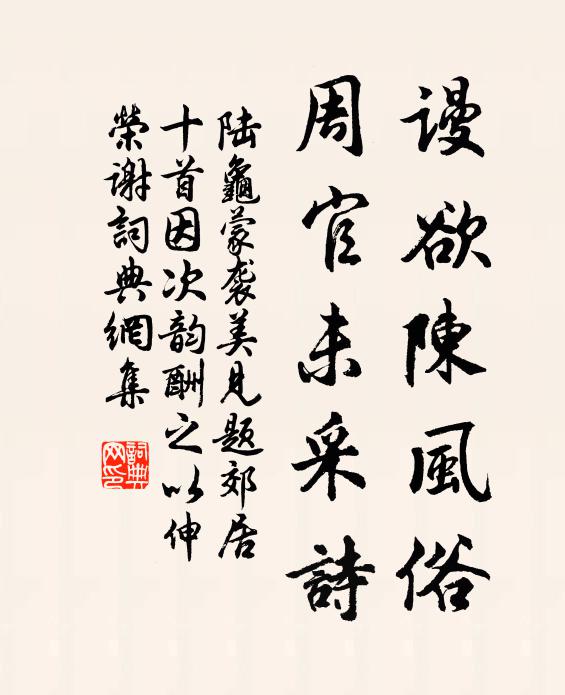 謾欲陳風俗
周官未采詩
陆龜蒙袭美見題郊居
十首因次韵酬之以伸
榮谢詞典網集
詞典网印